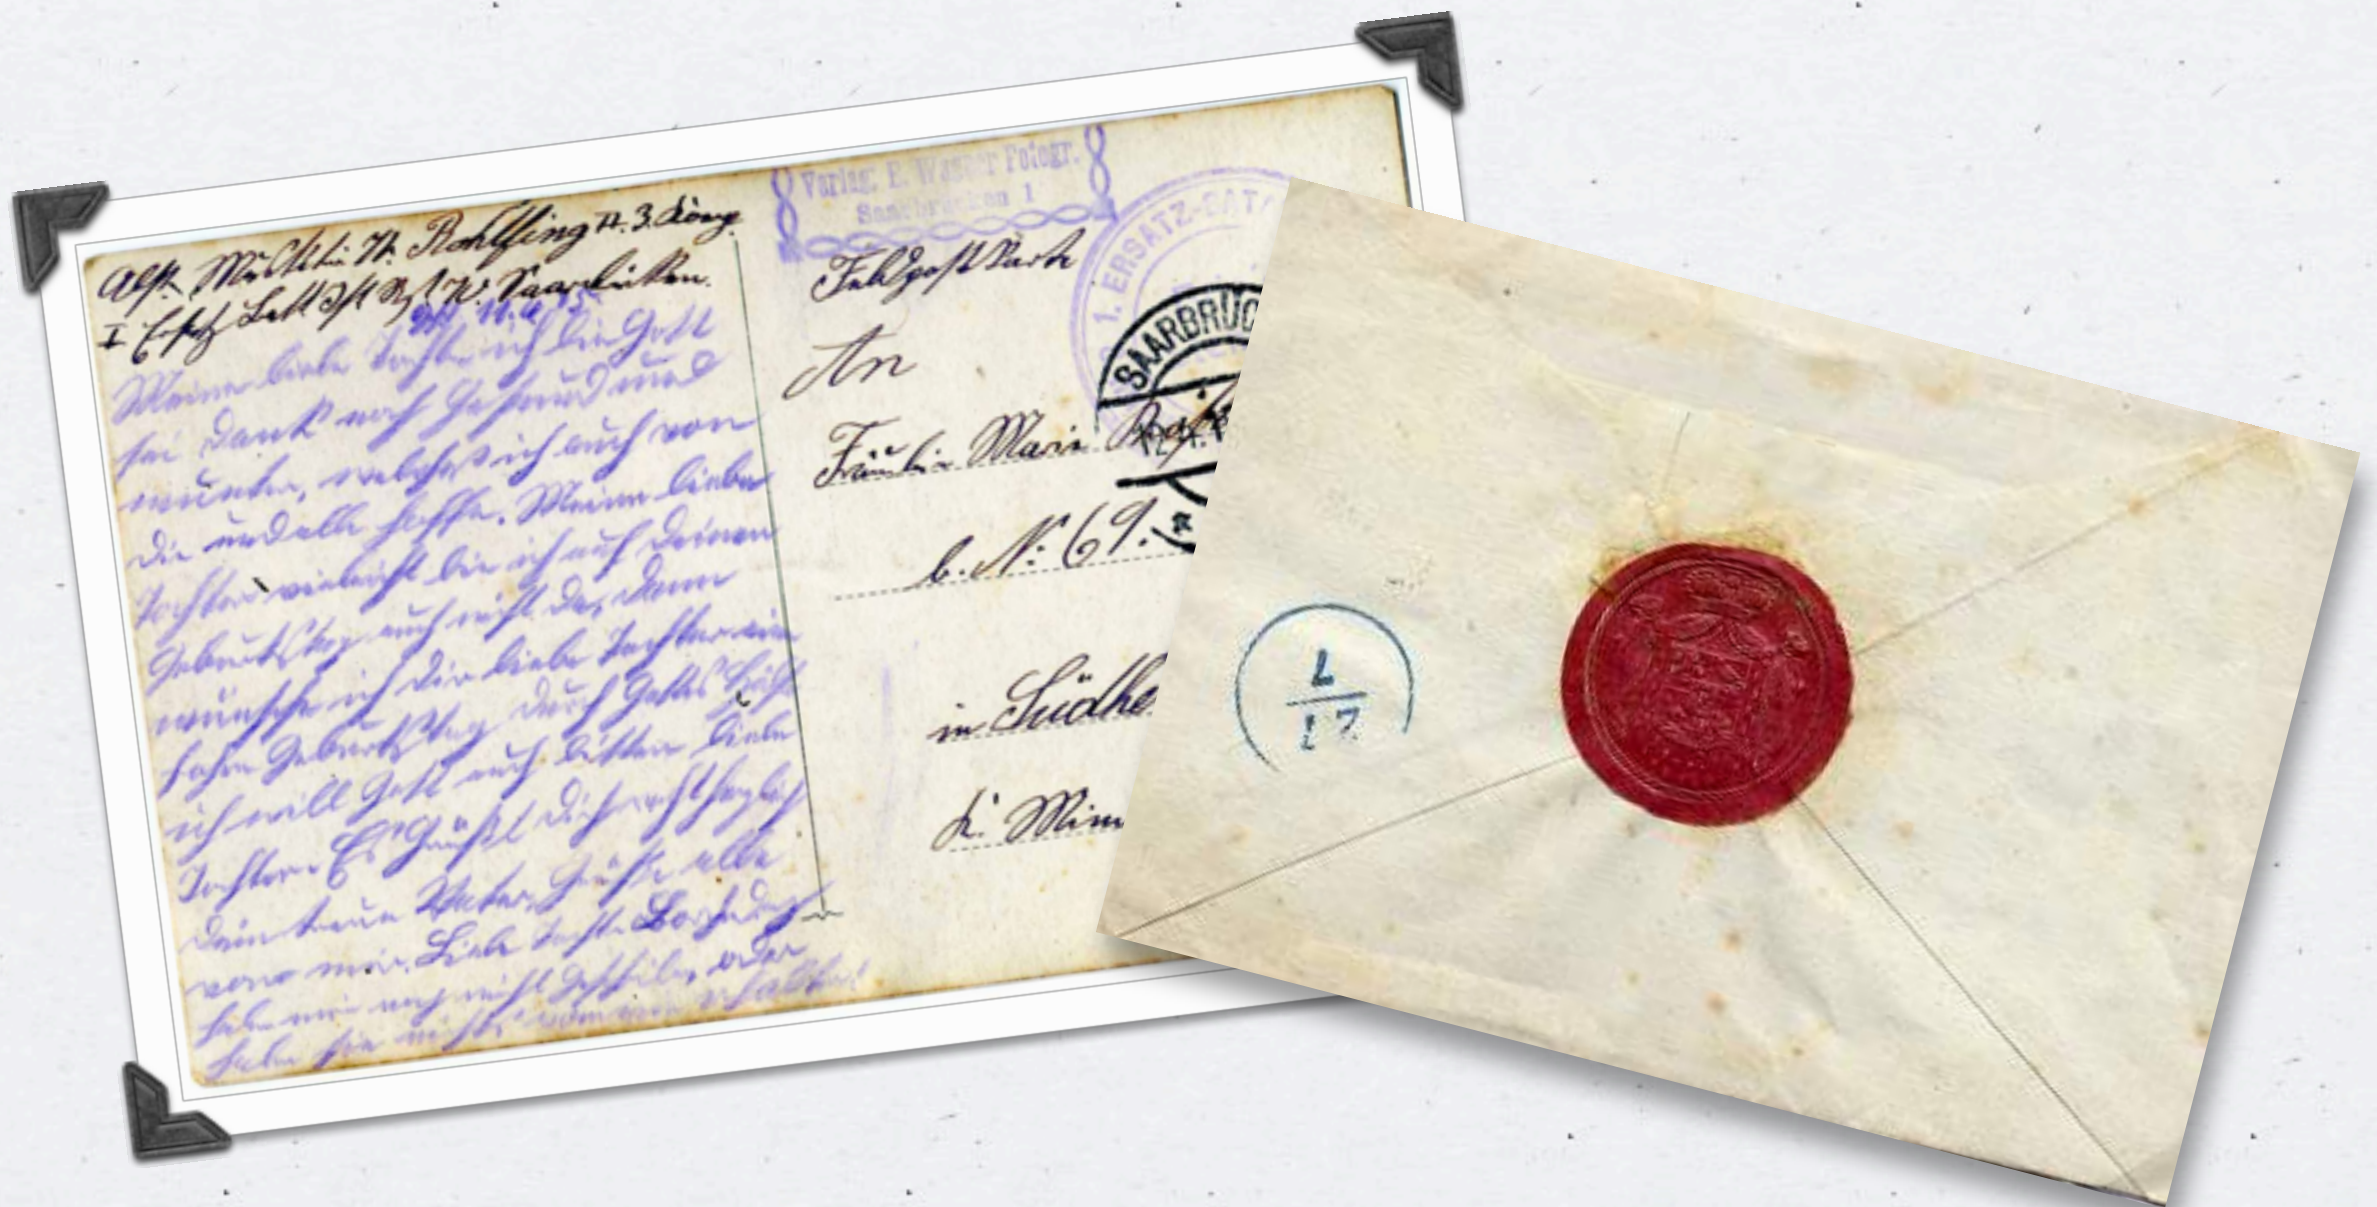 Abs. Musketier H. Rohlfing II. 3. Komp.
I Ersatz Batt Inft Rgt 70 Saarbrücken.
Meine liebe Tochter ich bin Gott
sei Dank noch Gesund und
munter, welches ich auch von
die und alle hoffe. Meine liebe
Tochter vieleicht bin ich auf deinen
Geburtstag auch nicht da, dann
wünsche ich dir liebe Tochter ein
frohen Geburtstag durch Gottes
ich will Gott auch bitten liebe
Tochter. Es Grüßt dich recht herzlich
dein treuer Vater, Grüße alle
von mir. Liebe Tochter
habe mir noch nicht oder
habe sie nichts von erhalten!
Verlag: E. Wagner Fotogr.
Saarbrücken 1
1. ERSATZ-BAT
SAARBRÜC
Feldpostkarte
An
Fräulein Marie
b. N: 69.
in Südhe
K. Min
7
17